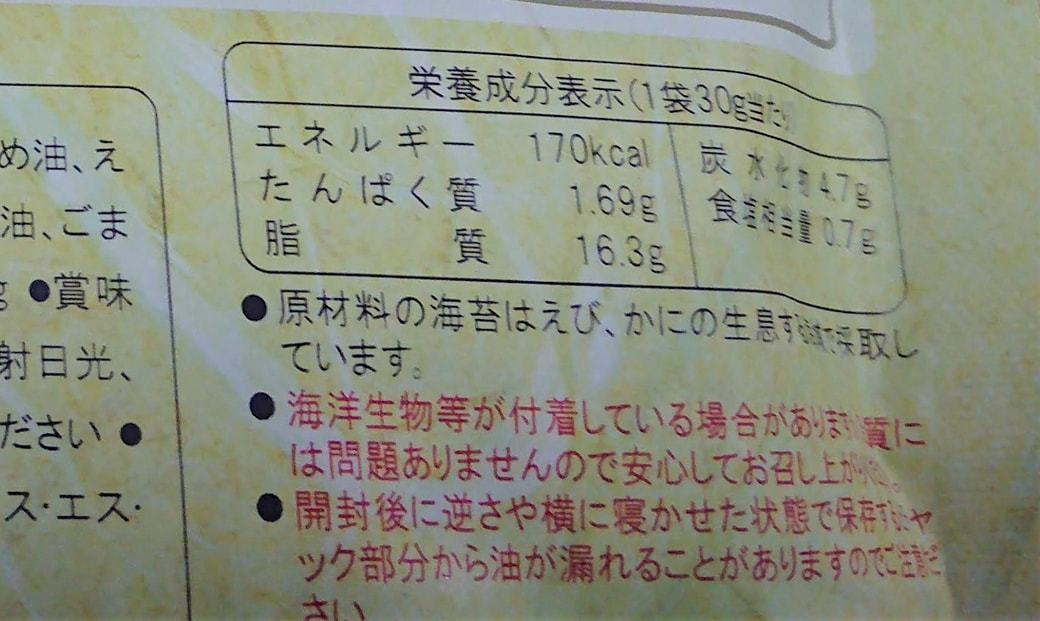 め油、え
油、ごま
g ●賞味
射日光、
ださい ●
ス・エス・
栄養成分表示(1袋30g当たり)
エネルギー 170kcal
たんぱく質 1.69g
脂質 16.3g
炭水化物 4.7g
食塩相当量 0.7g
●原材料の海苔はえび、かにの生息する海域で採取し
ています。
●海洋生物等が付着している場合があります 質に
は問題ありませんので安心してお召し上がり
●開封後に逆さや横に寝かせた状態で保存するとチャ
ック部分から油が漏れることがありますのでご注意くだ
さい